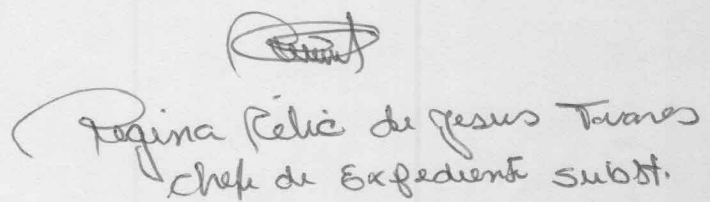 Regina Célia de Jesus Tavares
Chefe de Expediente subst.